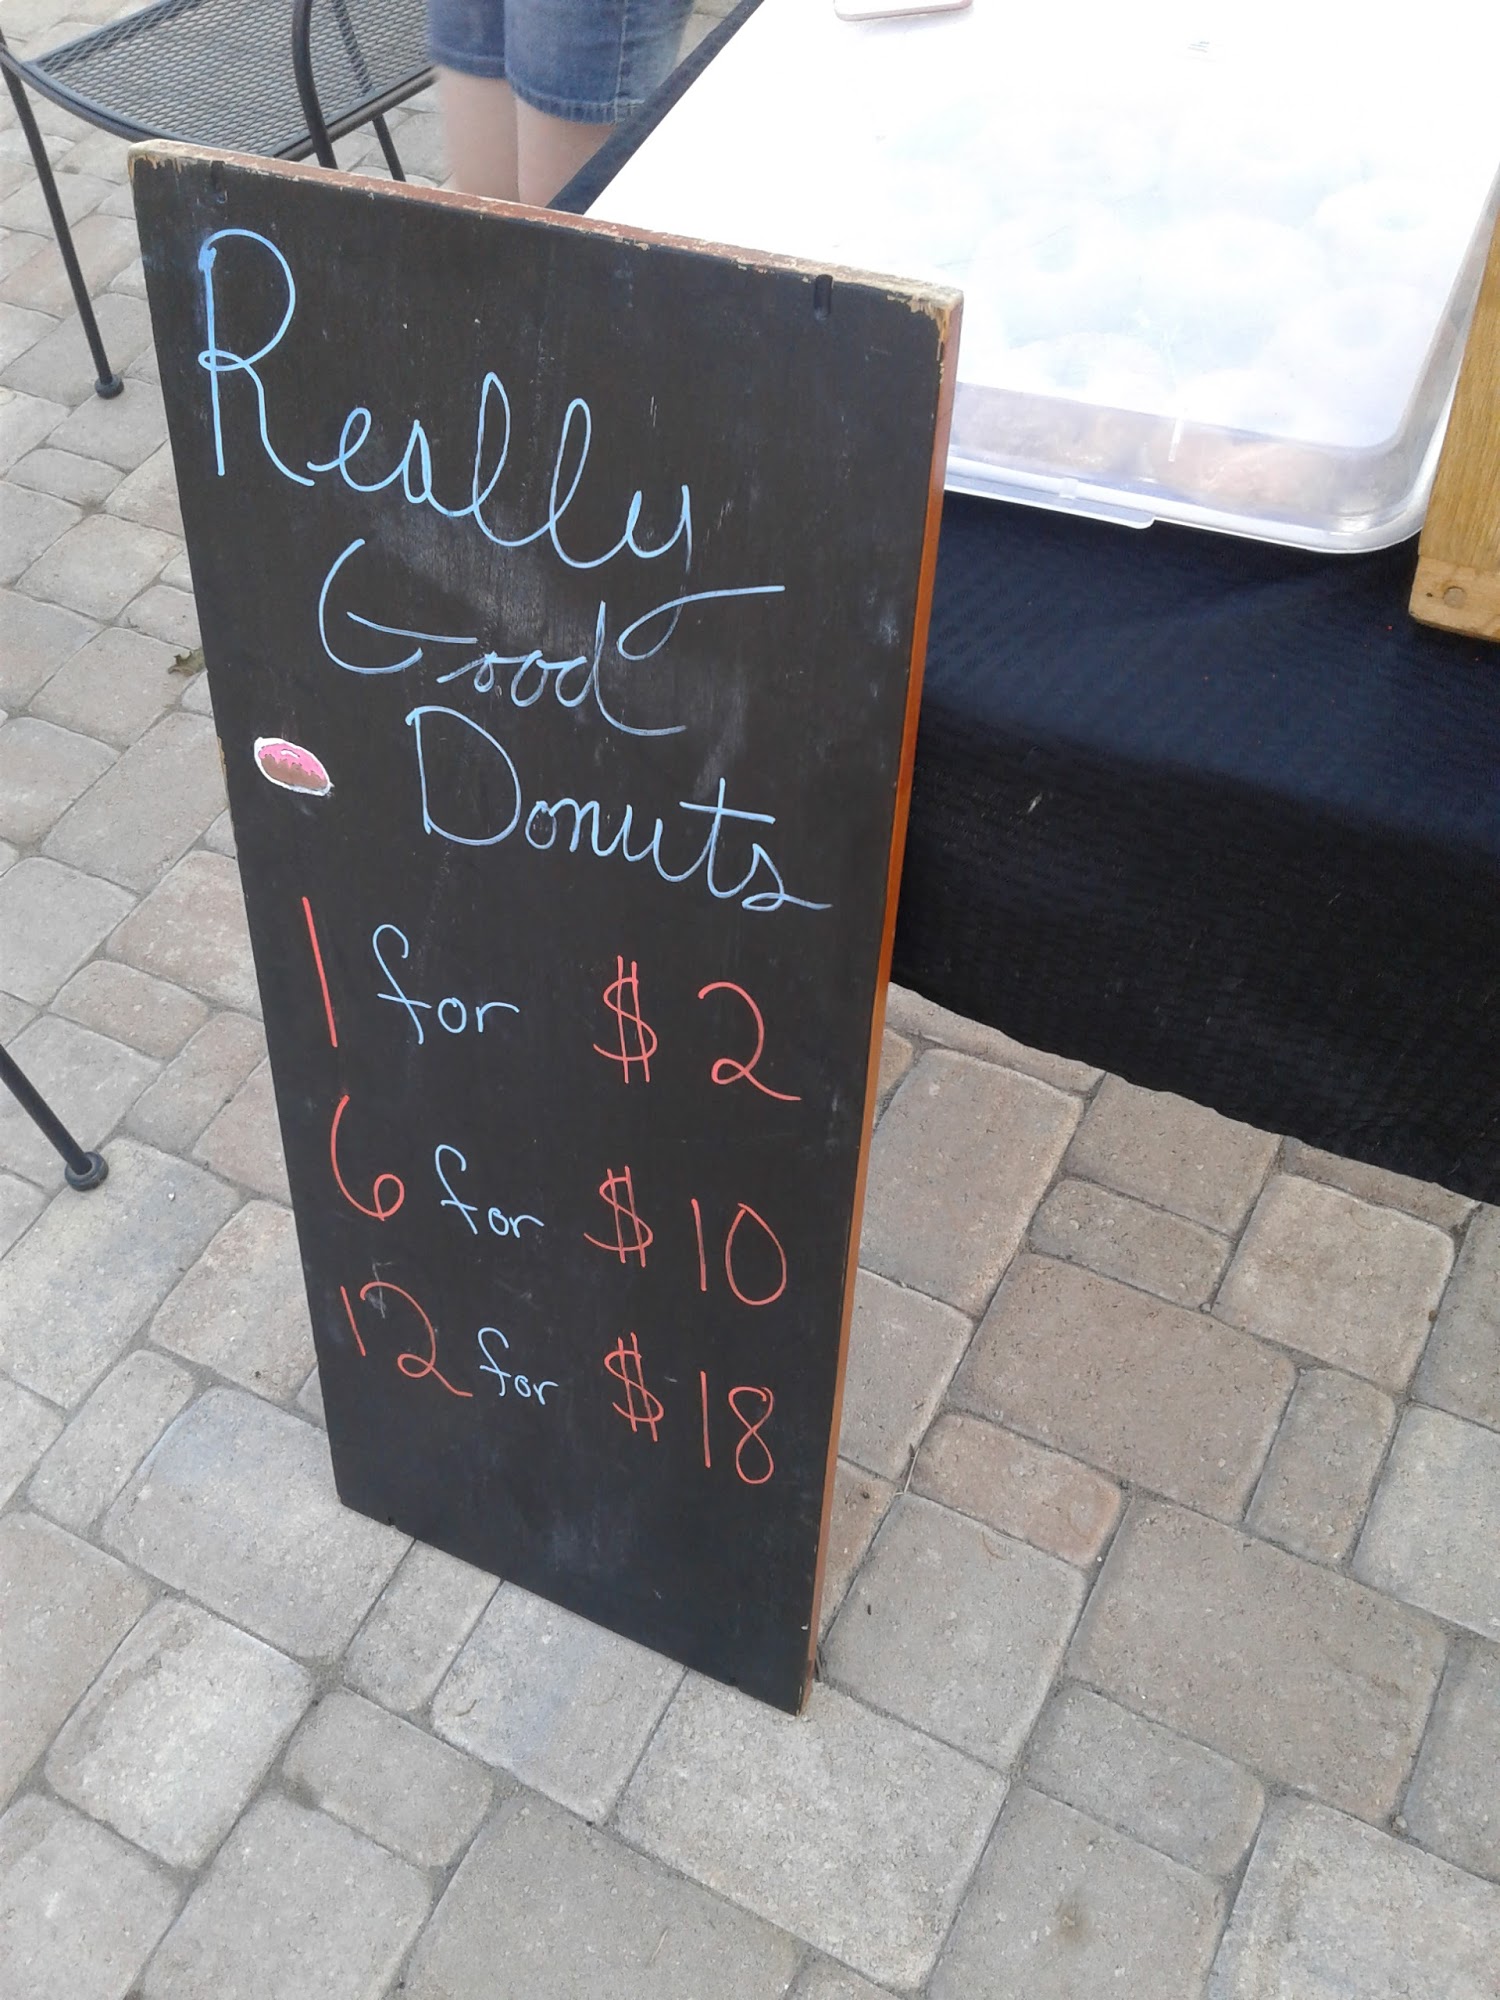 Really
Good
Donuts
1 for $2
6 for $10
12 for $18